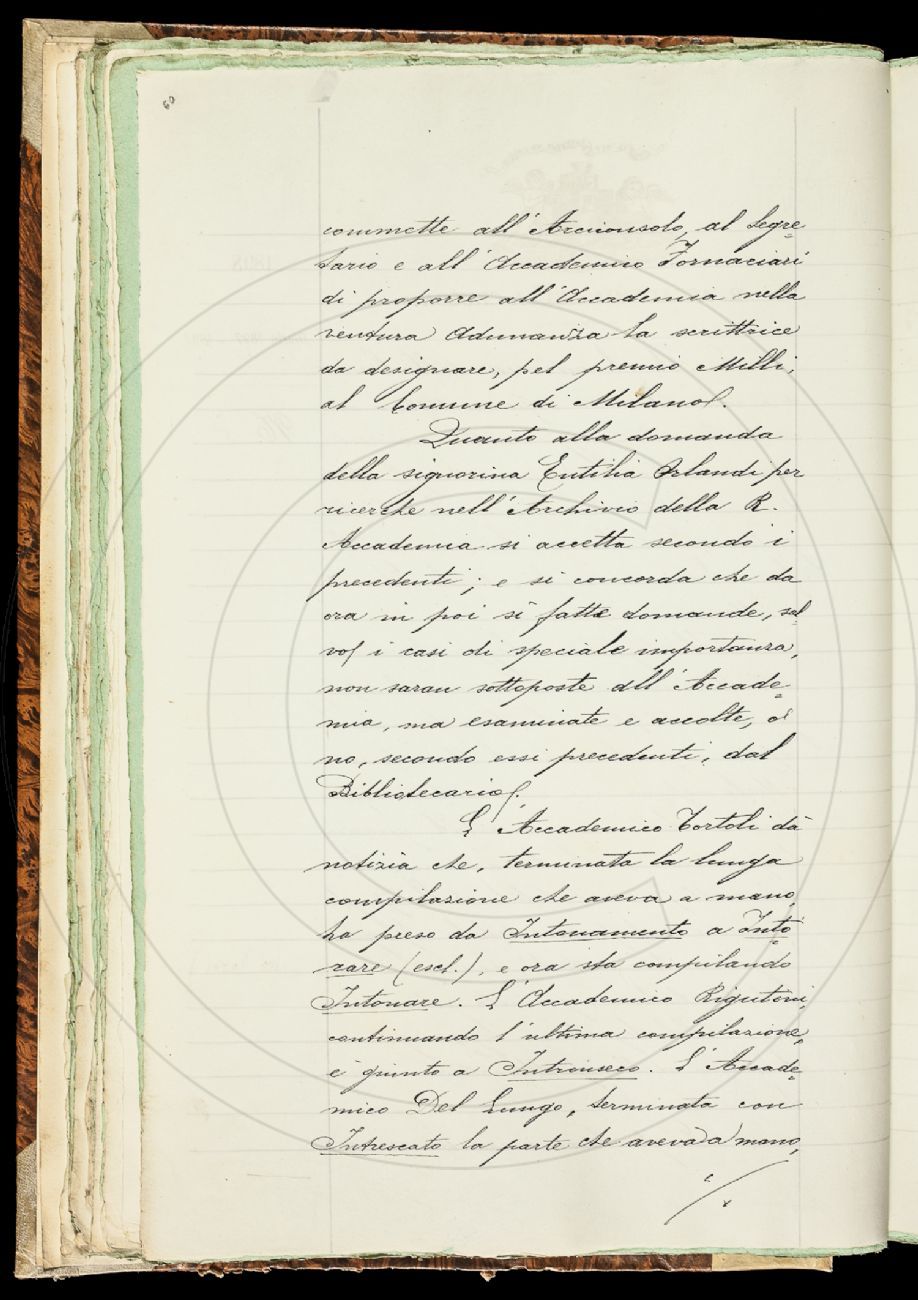 60
commette all'Arciconsolo, al Segre=
tario e all'Accademico Fornaciari
di proporre all'Accademia nella
ventura Adunanza la scrittrice
da designare, pel premio Milli,
al Comune di Milano.
Quanto alla domanda
della signorina Entilia Orlandi per
ricerche nell'Archivio della R.
Accademia si accetta secondo i
precedenti; e si concorda che da
ora in poi sì fatte domande, sal=
vo i casi di speciale importanza,
non saran sottoposte all'Accade=
mia, ma esaminate e accolte, o
no, secondo essi precedenti, dal
Bibliotecario.
L'Accademico Tortoli dà
notizia che, terminata la lunga
compilazione che aveva a mano,
ha preso da Intonamento a Into=
nare (escl.), e ora sta compilando
Intonare. L'Accademico Rigutini,
continuando l'ultima compilazione,
è giunto a Intrinseco. L'Accade=
mico Del Lungo, terminata con
Intrescato la parte che aveva a mano,
./.